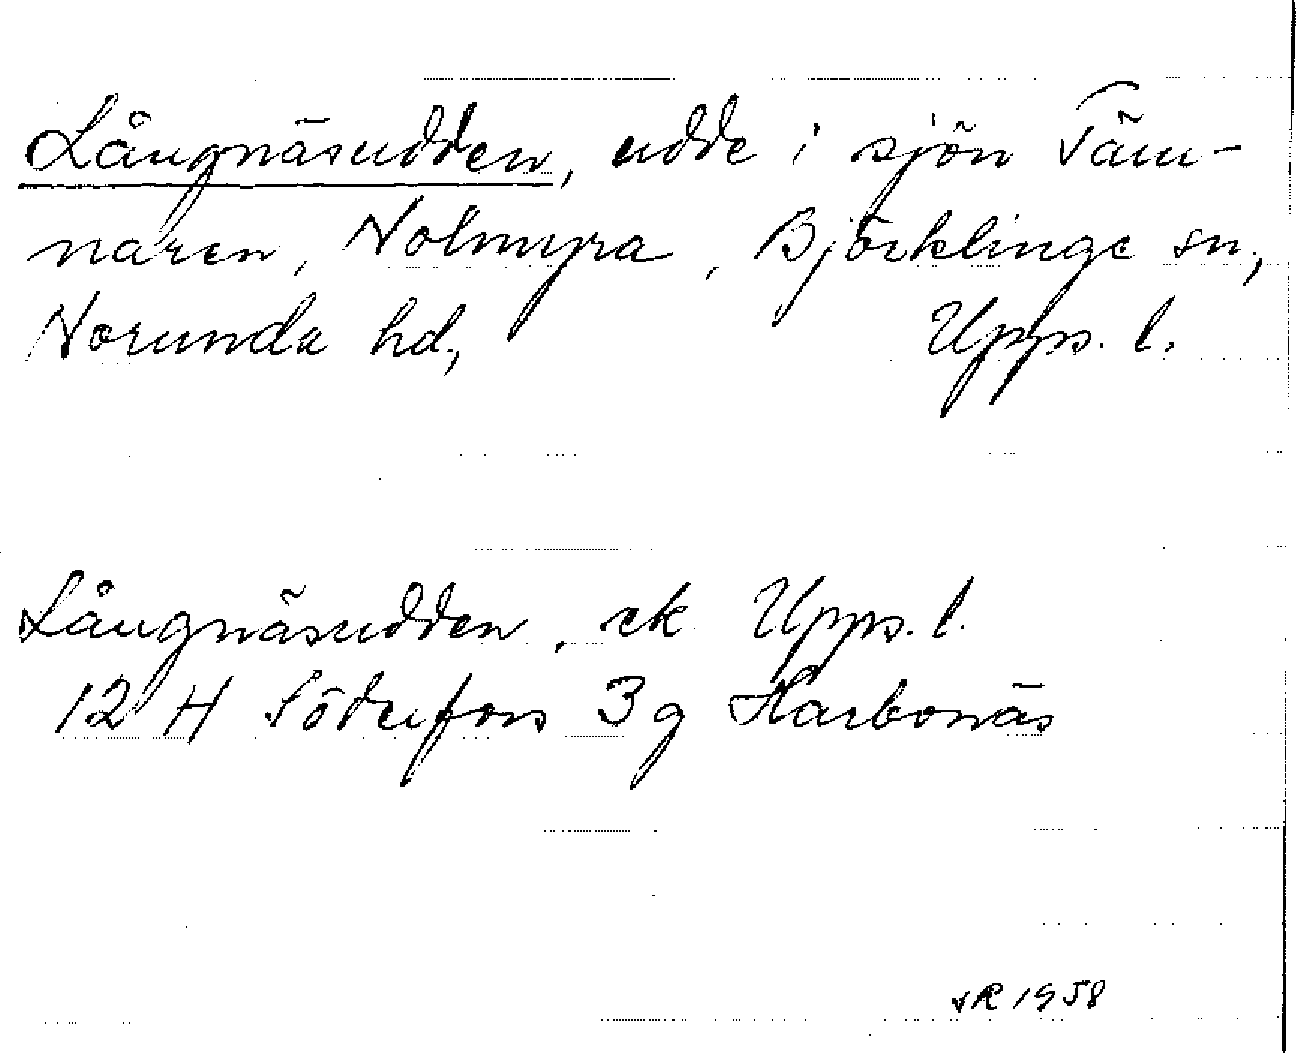 Långnäsudden, udde i sjön Täm-
naren, Nolmyra, Björklinge sn,
Norunda hd, Upps. l.
Långnäsudden, ek Upps. l.
12 H Söderfors 3g Harbonäs
VR 1958